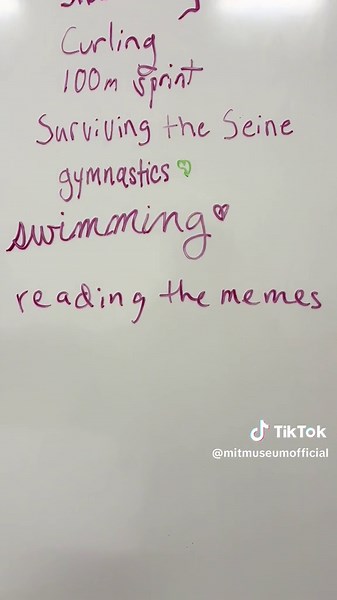 Curling
100m sprint
Surviving the Seine
gymnastics
swimming
reading the memes
TikTok
@mitmuseumofficial